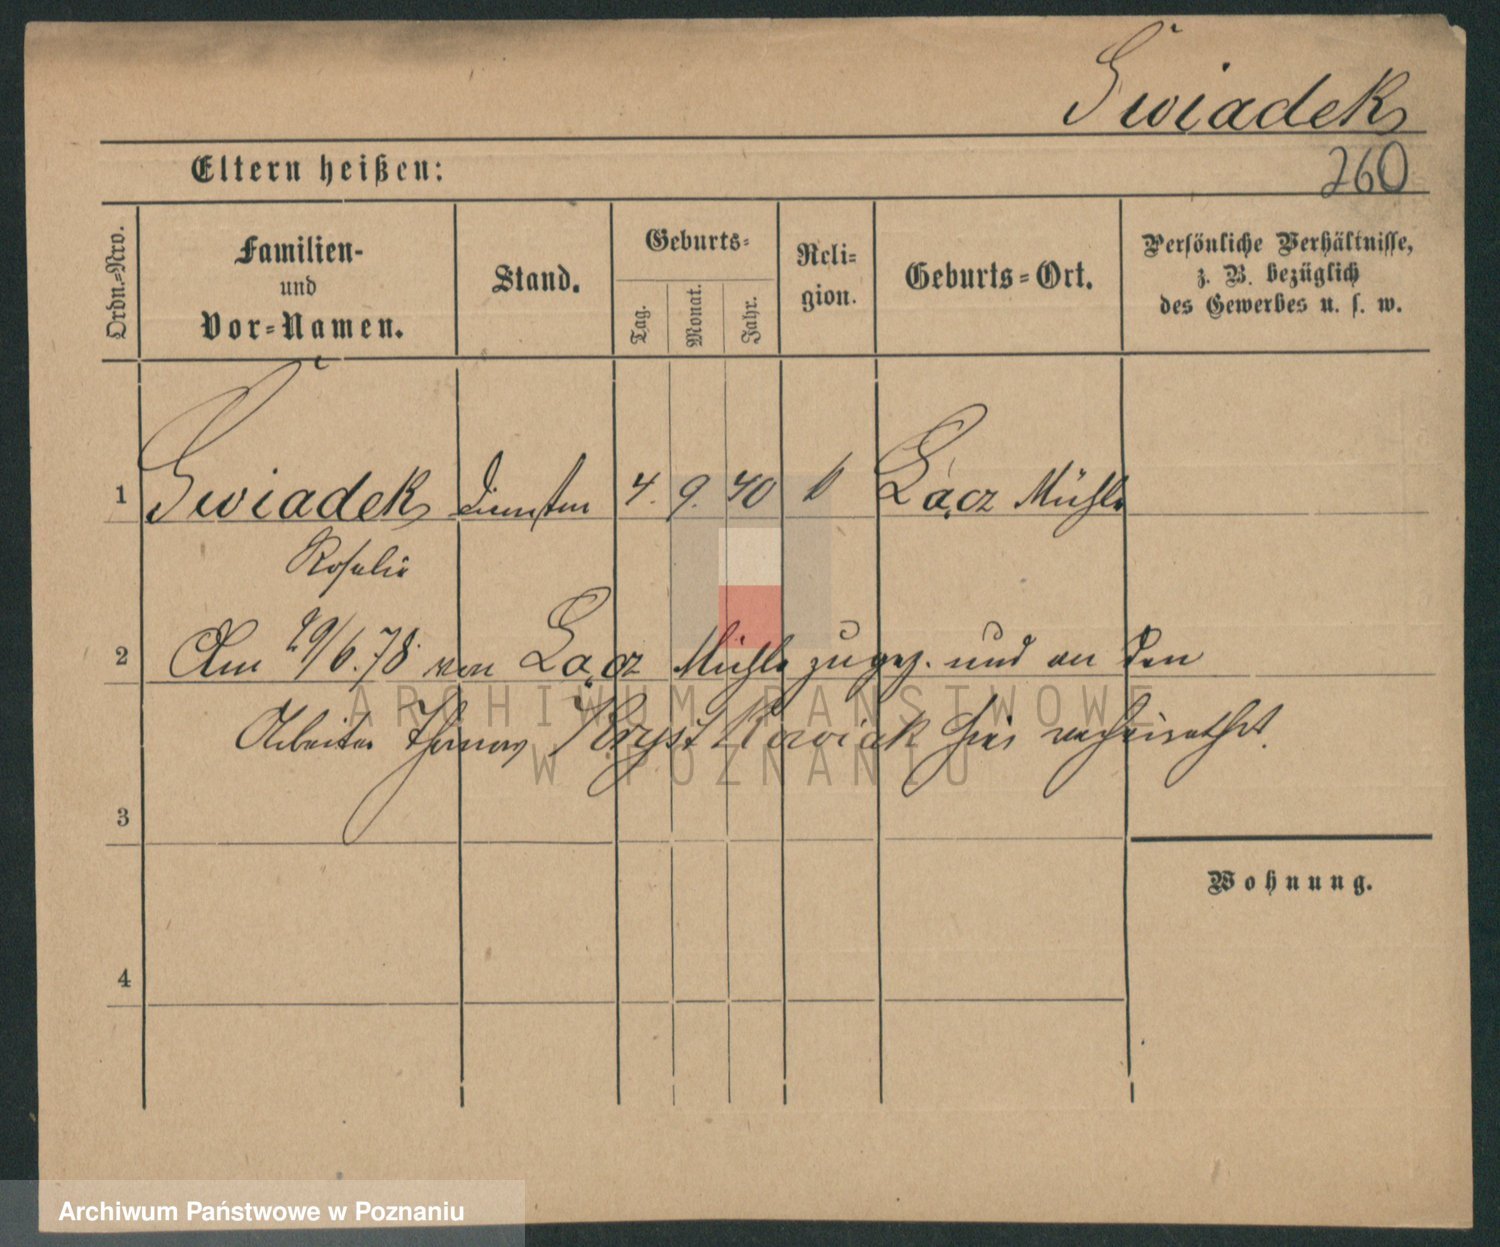 Swiadek
260
Eltern heißen:
Ordn.=Nro.
Familien-
und
Vor=Namen.
Stand.
Geburts=
Tag.
Monat.
Jahr.
Reli=
gion.
Geburts=Ort.
Persönliche Verhältnisse,
z. B. bezüglich
des Gewerbes u. s. w.
1 Swiadek 4. 9. 40 k Lącz Mühle
Rosalie
2 Am 29/6.78 von Lącz Mühle zugez. und an den
Arbeiter Thomas Krystkowiak hier verheirathet.
3
Wohnung.
4
ARCHIWUM PAŃSTWOWE
W POZNANIU
Archiwum Państwowe w Poznaniu